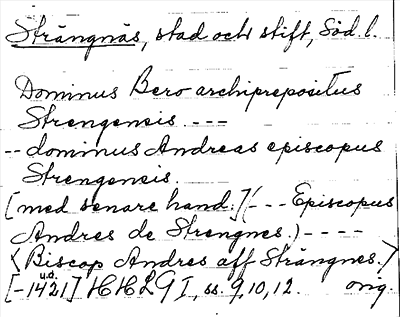 Strängnäs, stad och stift, Söd. l.
Dominus Bero archiprepositus
Strengensis ---
-- dominus Andreas episcopus
Strengensis
[med senare hand:] (--- Episcopus
Andres de Strengnes.) ----
<Biscop Andres aff Strängnes.>
[-1421] u.å. HHLG I, ss. 9, 10, 12. orig.